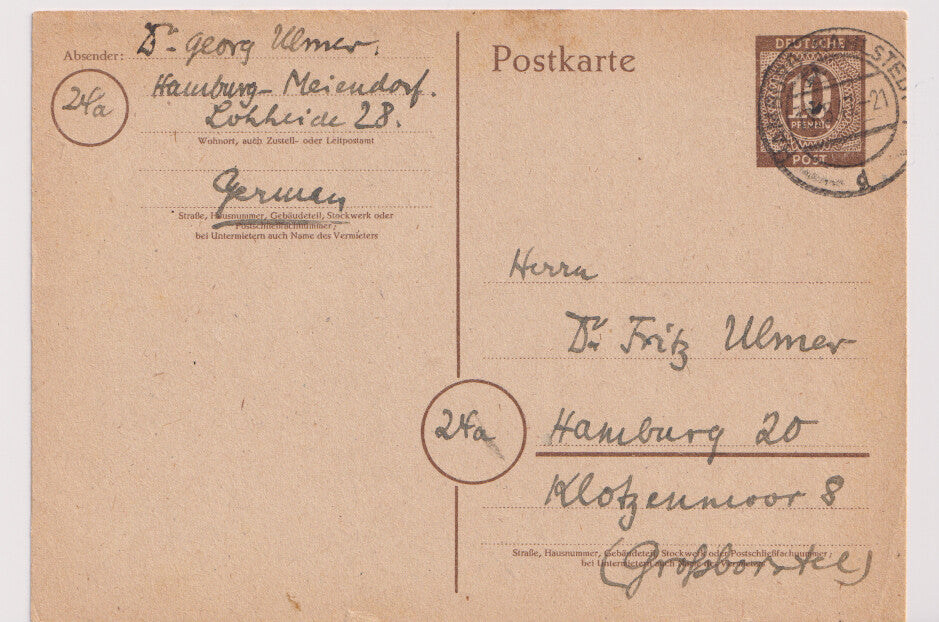 Absender: Dr. Georg Ulmer.
24a
Hamburg-Meiendorf.
Lohheide 28.
Wohnort, auch Zustell- oder Leitpostamt
German
Straße, Hausnummer, Gebäudeteil, Stockwerk oder
Postschließfachnummer;
bei Untermietern auch Name des Vermieters
Postkarte
DEUTSCHE
10
PFENNIG
POST
-21
d
Herrn
Dr. Fritz Ulmer
24a
Hamburg 20
Klotzenmoor 8
Straße, Hausnummer, Gebäudeteil, Stockwerk oder Postschließfachnummer;
bei Untermietern auch Name des Vermieters
(Großborstel)